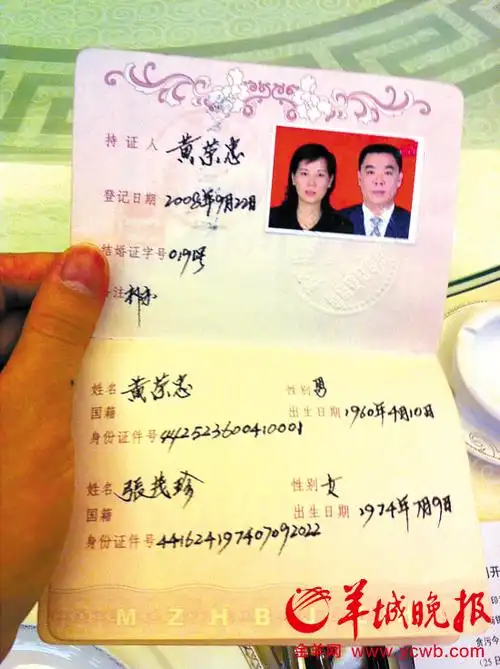 持证人 黄荣忠
登记日期 2008年9月22日
结婚证字号 019号
注
姓名 黄荣忠 性别 男
国籍 出生日期 1960年4月10日
身份证件号 442523600410001
姓名 張茂珍 性别 女
国籍 出生日期 1974年7月9日
身份证件号 441624197407092022
MZHB
羊城晚报
金羊网 www.ycwb.com